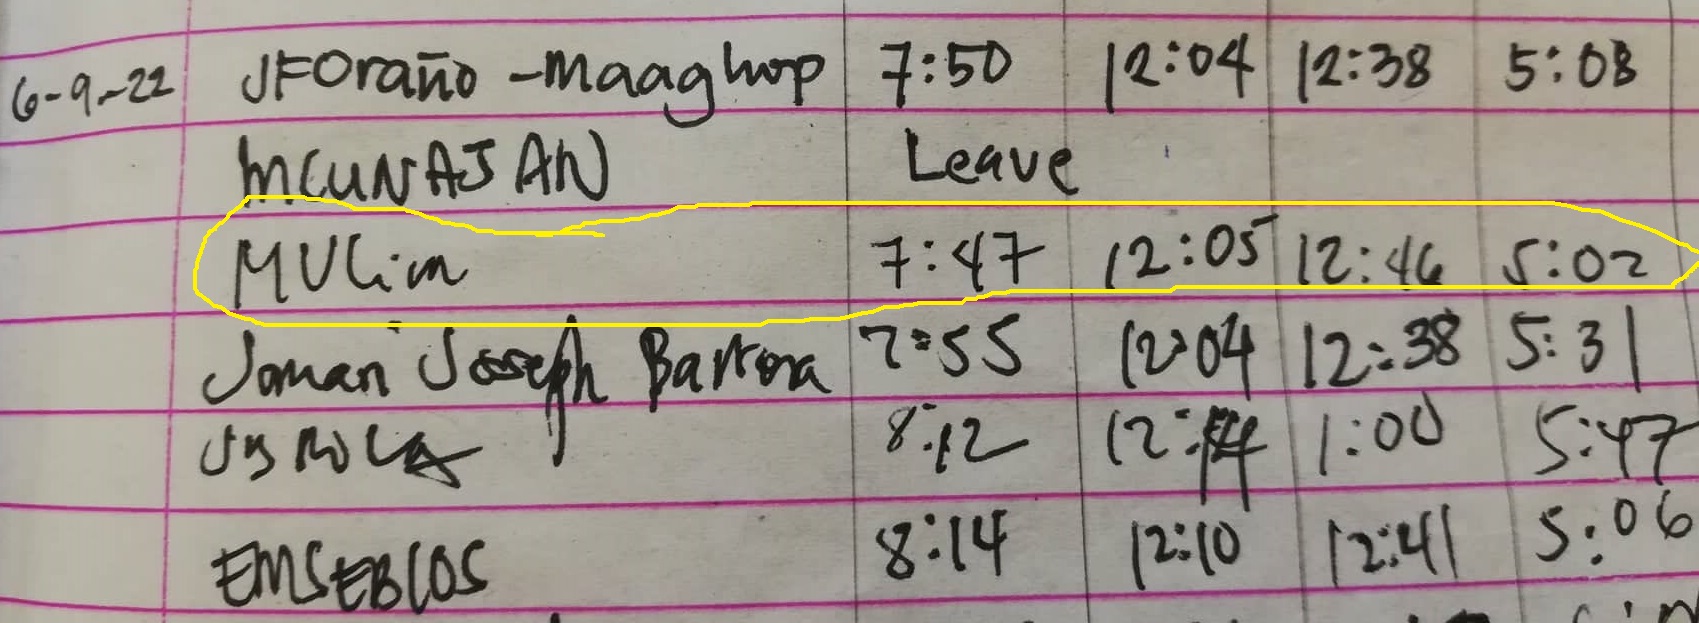 6-9-22 JFOraño -Maaghop 7:50 12:04 12:38 5:08
MCUNAJAN Leave
MVLim 7:47 12:05 12:46 5:02
Joman Joseph Bartona 7:55 12:04 12:38 5:31
8:12 12:14 1:00 5:47
EMSEBLOS 8:14 12:10 12:41 5:06